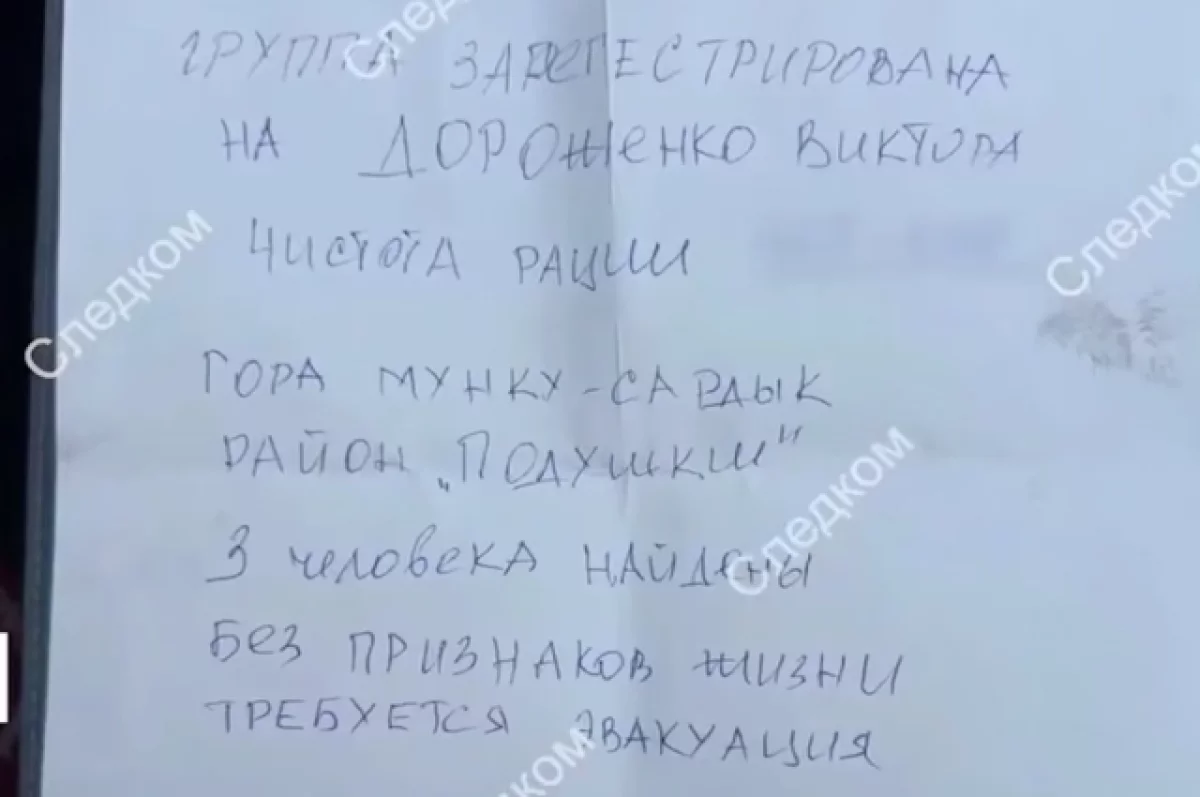 ГРУППА ЗАРЕГЕСТРИРОВАНА
НА ДОРОЖЕНКО ВИКТОРА
ЧИСТОТА РАЦИИ
ГОРА МУНКУ-САРДЫК
РАЙОН „ПОДУШКИ"
3 человека НАЙДЕНЫ
БЕЗ ПРИЗНАКОВ ЖИЗНИ
ТРЕБУЕТСЯ ЭВАКУАЦИЯ
Следком
Следком
Следком
Следком
Следком